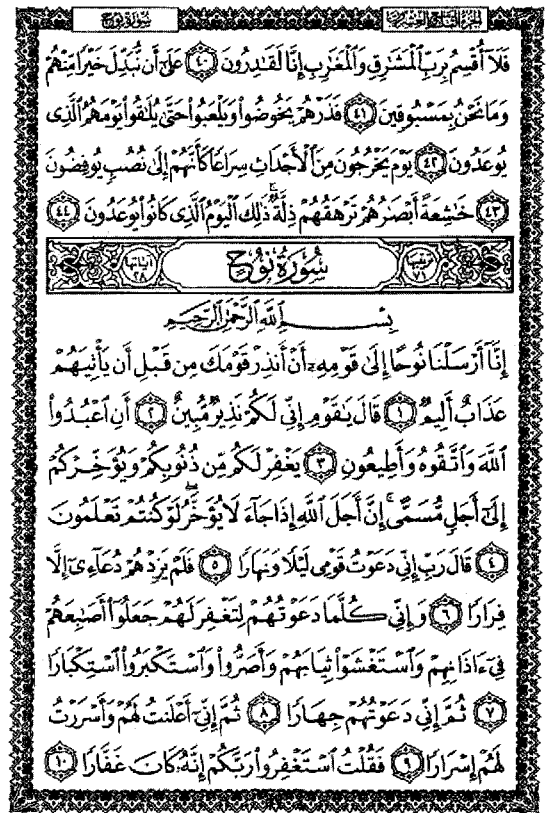 الجزء التاسع والعشرون سورة نوح
فَلَآ أُقْسِمُ بِرَبِّ ٱلْمَشَٰرِقِ وَٱلْمَغَٰرِبِ إِنَّا لَقَٰدِرُونَ ٤٠ عَلَىٰٓ أَن نُّبَدِّلَ خَيْرًا مِّنْهُمْ
وَمَا نَحْنُ بِمَسْبُوقِينَ ٤١ فَذَرْهُمْ يَخُوضُوا۟ وَيَلْعَبُوا۟ حَتَّىٰ يُلَٰقُوا۟ يَوْمَهُمُ ٱلَّذِى
يُوعَدُونَ ٤٢ يَوْمَ يَخْرُجُونَ مِنَ ٱلْأَجْدَاثِ سِرَاعًا كَأَنَّهُمْ إِلَىٰ نُصُبٍ يُوفِضُونَ
٤٣ خَٰشِعَةً أَبْصَٰرُهُمْ تَرْهَقُهُمْ ذِلَّةٌ ۚ ذَٰلِكَ ٱلْيَوْمُ ٱلَّذِى كَانُوا۟ يُوعَدُونَ ٤٤
ترتيبها ٧١ سُورَةُ نُوحٍ آياتها ٢٨
بِسْمِ ٱللَّهِ ٱلرَّحْمَٰنِ ٱلرَّحِيمِ
إِنَّآ أَرْسَلْنَا نُوحًا إِلَىٰ قَوْمِهِۦٓ أَنْ أَنذِرْ قَوْمَكَ مِن قَبْلِ أَن يَأْتِيَهُمْ
عَذَابٌ أَلِيمٌ ١ قَالَ يَٰقَوْمِ إِنِّى لَكُمْ نَذِيرٌ مُّبِينٌ ٢ أَنِ ٱعْبُدُوا۟
ٱللَّهَ وَٱتَّقُوهُ وَأَطِيعُونِ ٣ يَغْفِرْ لَكُم مِّن ذُنُوبِكُمْ وَيُؤَخِّرْكُمْ
إِلَىٰٓ أَجَلٍ مُّسَمًّى ۚ إِنَّ أَجَلَ ٱللَّهِ إِذَا جَآءَ لَا يُؤَخَّرُ ۖ لَوْ كُنتُمْ تَعْلَمُونَ
٤ قَالَ رَبِّ إِنِّى دَعَوْتُ قَوْمِى لَيْلًا وَنَهَارًا ٥ فَلَمْ يَزِدْهُمْ دُعَآءِىٓ إِلَّا
فِرَارًا ٦ وَإِنِّى كُلَّمَا دَعَوْتُهُمْ لِتَغْفِرَ لَهُمْ جَعَلُوٓا۟ أَصَٰبِعَهُمْ
فِىٓ ءَاذَانِهِمْ وَٱسْتَغْشَوْا۟ ثِيَابَهُمْ وَأَصَرُّوا۟ وَٱسْتَكْبَرُوا۟ ٱسْتِكْبَارًا
٧ ثُمَّ إِنِّى دَعَوْتُهُمْ جِهَارًا ٨ ثُمَّ إِنِّىٓ أَعْلَنتُ لَهُمْ وَأَسْرَرْتُ
لَهُمْ إِسْرَارًا ٩ فَقُلْتُ ٱسْتَغْفِرُوا۟ رَبَّكُمْ إِنَّهُۥ كَانَ غَفَّارًا ١٠